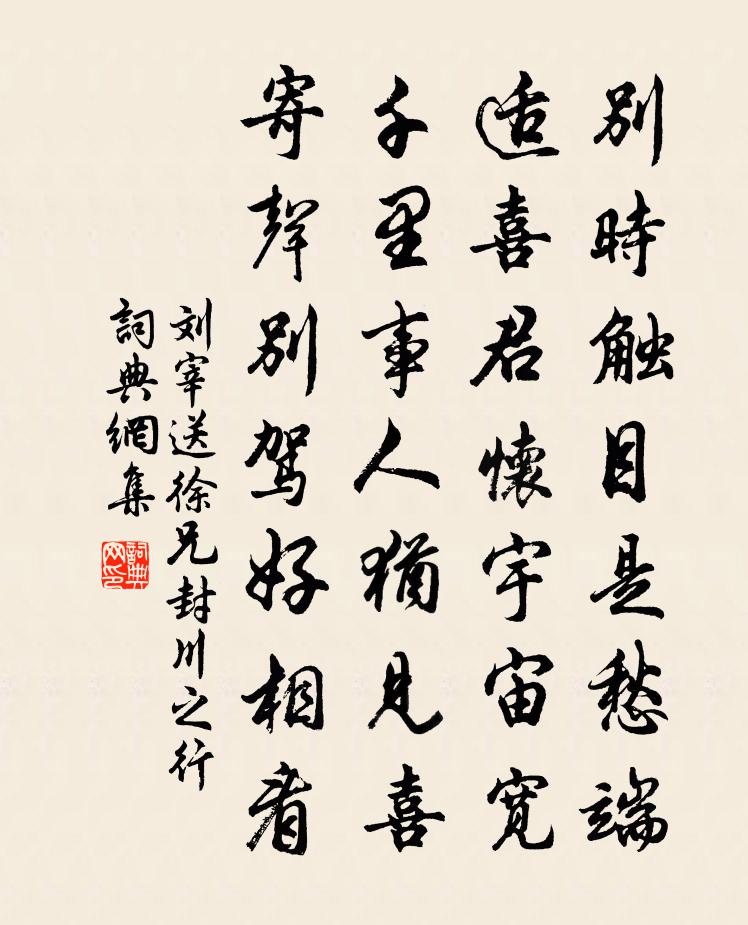 別時触目是愁端
适喜君懷宇宙寬
千里事人猶見喜
寄聲別駕好相看
刘宰送徐兄封川之行
詞典網集
詞典网印